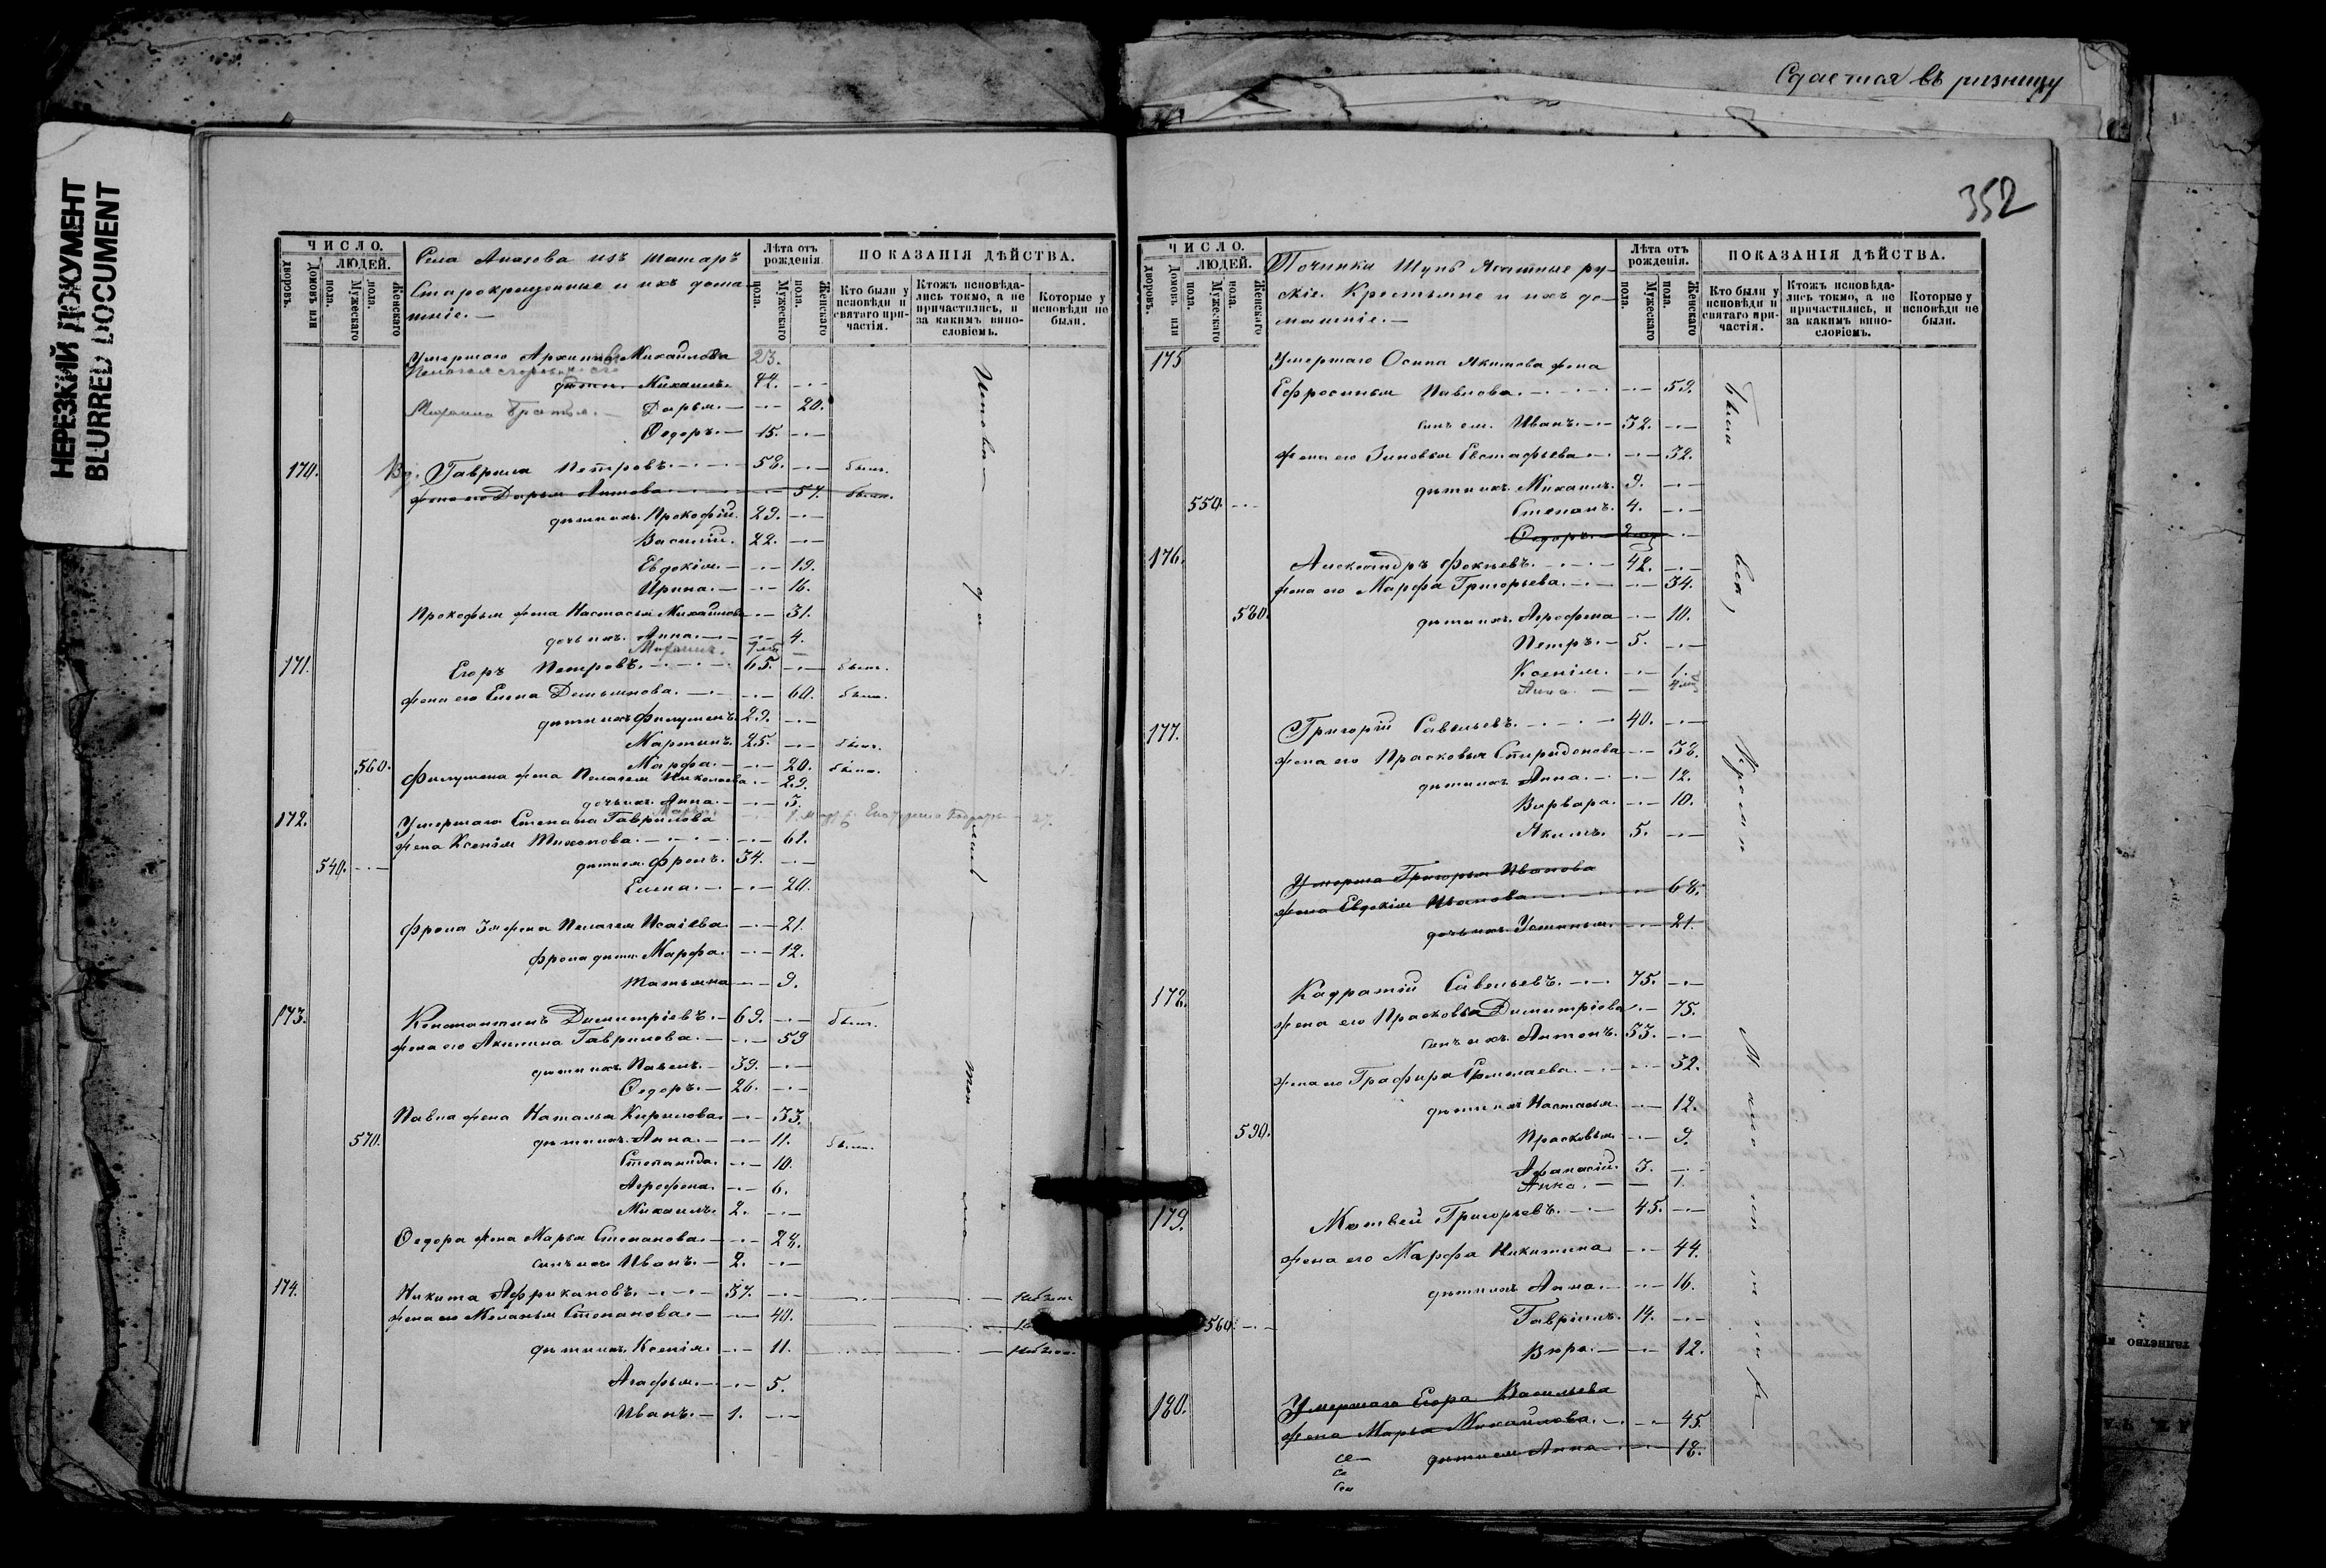 НЕРЕЗКИЙ ДОКУМЕНТ
BLURRED DOCUMENT
ЧИСЛО.
ЛЮДЕЙ.
Домовъ или дворовъ.
Мужескаго пола.
Женскаго пола.
Села Апазова изъ татаръ
Старокрещенные и ихъ дома-
шніе. —
Лѣта отъ рожденія
Мужескаго пола.
Женскаго пола.
ПОКАЗАНІЯ ДѢЙСТВА.
Кто были у исповѣди и святаго причастія.
Ктожъ исповѣдались токмо, а не причастились, и за какимъ винословіемъ.
Которые у исповѣди не были.
Умершаго Архипа Михайлова 23.
дѣти. Михаилъ. 44. — —
Дарья. — — 20.
Ѳедоръ. — 15. — —
170. Вд. Гаврила Петровъ. — 58. — — былъ.
жена его Дарья Антова — 57. была.
дѣти ихъ. Прокофій. 29. — —
Василій. 22. — —
Евдокія. — — 19.
Ирина. — — 16.
Прокофья жена Настасья Михайлова — 31.
дочь ихъ. Анна. — — 4.
Михаилъ.
171. Егоръ Петровъ. — 65. — — былъ.
жена его Елена Демьянова. — — 60. была.
дѣти ихъ Филумонъ. 29. — —
Мартинъ. 25. — — былъ.
560. Марфа. — — 20. была.
Филумона жена Пелагея Николаева — 29.
дочь ихъ. Анна. — — 3.
172. Умершаго Степана Гаврилова
жена Ксенія Тихонова. — — 61.
540. — дѣти ея. Фролъ. 34. — —
Елена. — — 20.
Фрола 3я жена Пелагея Исаіева. — — 21.
Фрола дѣти. Марфа. — — 12.
Татьяна — — 9.
173. Константинъ Димитріевъ. — 69. — — былъ.
жена его Акилина Гаврилова. — — 59
дѣти ихъ. Павелъ. — 39. — —
Ѳедоръ. — 26. — —
Павла жена Наталья Кирилова. — — 33.
570. дѣти ихъ. Анна. — — 11. была.
Степанида. — — 10.
Агрофена. — — 6.
Михаилъ. 2. — —
Ѳедора жена Марья Степанова. — — 28.
сынъ ихъ Иванъ. — 2. — —
174. Никита Африкановъ. — 57. — —
жена его Меланья Степанова. — — 40.
дѣти ихъ. Ксенія. — — 11.
Агафья. — — 5.
Иванъ. — 1. — —
Сдается въ ризницу
352
ЧИСЛО.
ЛЮДЕЙ.
Домовъ или дворовъ.
Мужескаго пола.
Женскаго пола.
Починка Шунь Ясатные ру-
скіе Крестьяне и ихъ до-
машніе. —
Лѣта отъ рожденія.
Мужескаго пола.
Женскаго пола.
ПОКАЗАНІЯ ДѢЙСТВА.
Кто были у исповѣди и святаго причастія.
Ктожъ исповѣдались токмо, а не причастились, и за какимъ винословіемъ.
Которые у исповѣди не были.
175 Умершаго Осипа Якимова жена
Ефросинья Павлова. — — 59.
сынъ ея. Иванъ. — 32. — —
жена его Зиновья Евстафьева — — 32.
дѣти ихъ. Михаилъ. 9. — —
550. — Степанъ. 4. — —
Ѳедоръ. — 2
176. Александръ Фокіевъ. — 42. — —
жена его Марфа Григорьева. — — 34.
580. дѣти ихъ. Агрофена — — 10.
Петръ. — 5. — —
Ксенія. — — 1.
Анна. — —
177. Григорій Савельевъ. — 40. — —
жена его Прасковья Спиридонова — — 38.
дѣти ихъ Анна. — — 12.
Варвара. — — 10.
Якимъ. 5. — —
Умерша Григорья Иванова
жена Евдокія Иванова — — 68.
дочь ихъ Устинья. — — 21.
178. Кадратій Савельевъ. — 75. — —
жена его Прасковья Димитріева — 75.
сынъ ихъ. Антонъ. 33. — —
жена его Графира — — 32.
дѣти ихъ Настасья — — 12.
590. Прасковья. — — 9.
Афанасій. 3. — —
Анна. — — 1.
179. Матвей Григорьевъ. — 45. — —
жена его Марфа Никитина — — 44.
дѣти ихъ Анна. — — 16.
560. — Гавріилъ. 14. — —
Вѣра. — — 12.
180. Умершаго Егора Васильева
жена Марья Михайлова. — — 45.
дѣти ея Анна — — 18.